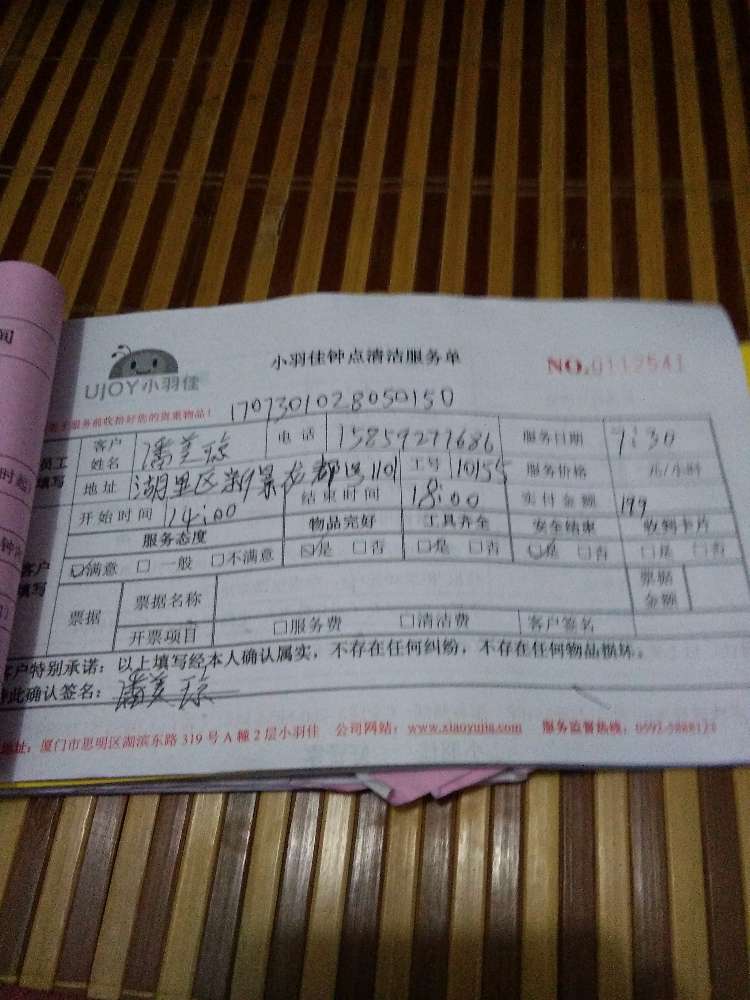 小羽佳钟点清洁服务单 NO.0112541
UJOY小羽佳
服务前收拾好您的贵重物品! 1707301028050150
员工填写 客户姓名 潘美琼 电话 15859277686 服务日期 7:30
地址 湖里区新景龙都 1101 工号 10155 服务价格 元/小时
开始时间 14:00 结束时间 18:00 实付金额 199
客户填写 服务态度 物品完好 工具齐全 安全结束 收到卡片
☑满意 □一般 □不满意 ☑是 □否 □是 □否 ☑是 □否 □是 □否
票据 票据名称 票据金额
开票项目 □服务费 □清洁费 客户签名
客户特别承诺:以上填写经本人确认属实,不存在任何纠纷,不存在任何物品损坏。
此确认签名:潘美琼
地址:厦门市思明区湖滨东路319号A幢2层小羽佳 公司网站:www.xiaoyujia.com 服务监督热线: